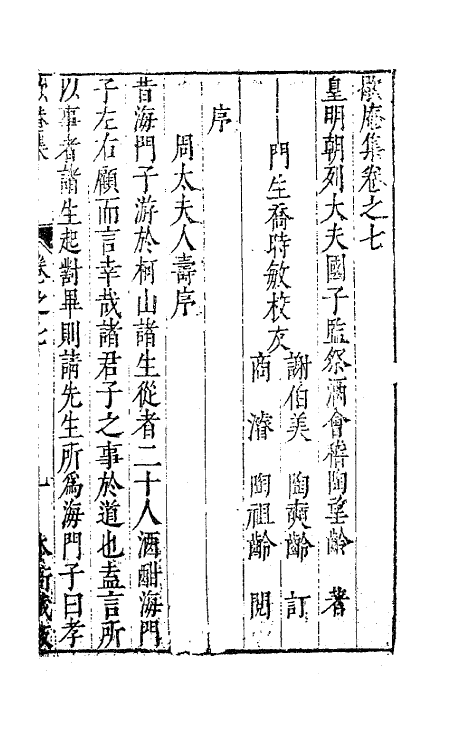 歇庵集卷之七
皇明朝列大夫國子監祭酒會稽陶望齡 著
謝伯美 陶奭齡 訂
門生喬時敏校友
商濬 陶祖齡 閱
序
周太夫人壽序
昔海門子游於柯山諸生從者二十人酒酣海門
子左右顧而言幸哉諸君子之事於道也盍言所
以事者諸生起對畢則請先生所爲海門子曰孝
歇菴集 卷之七 一